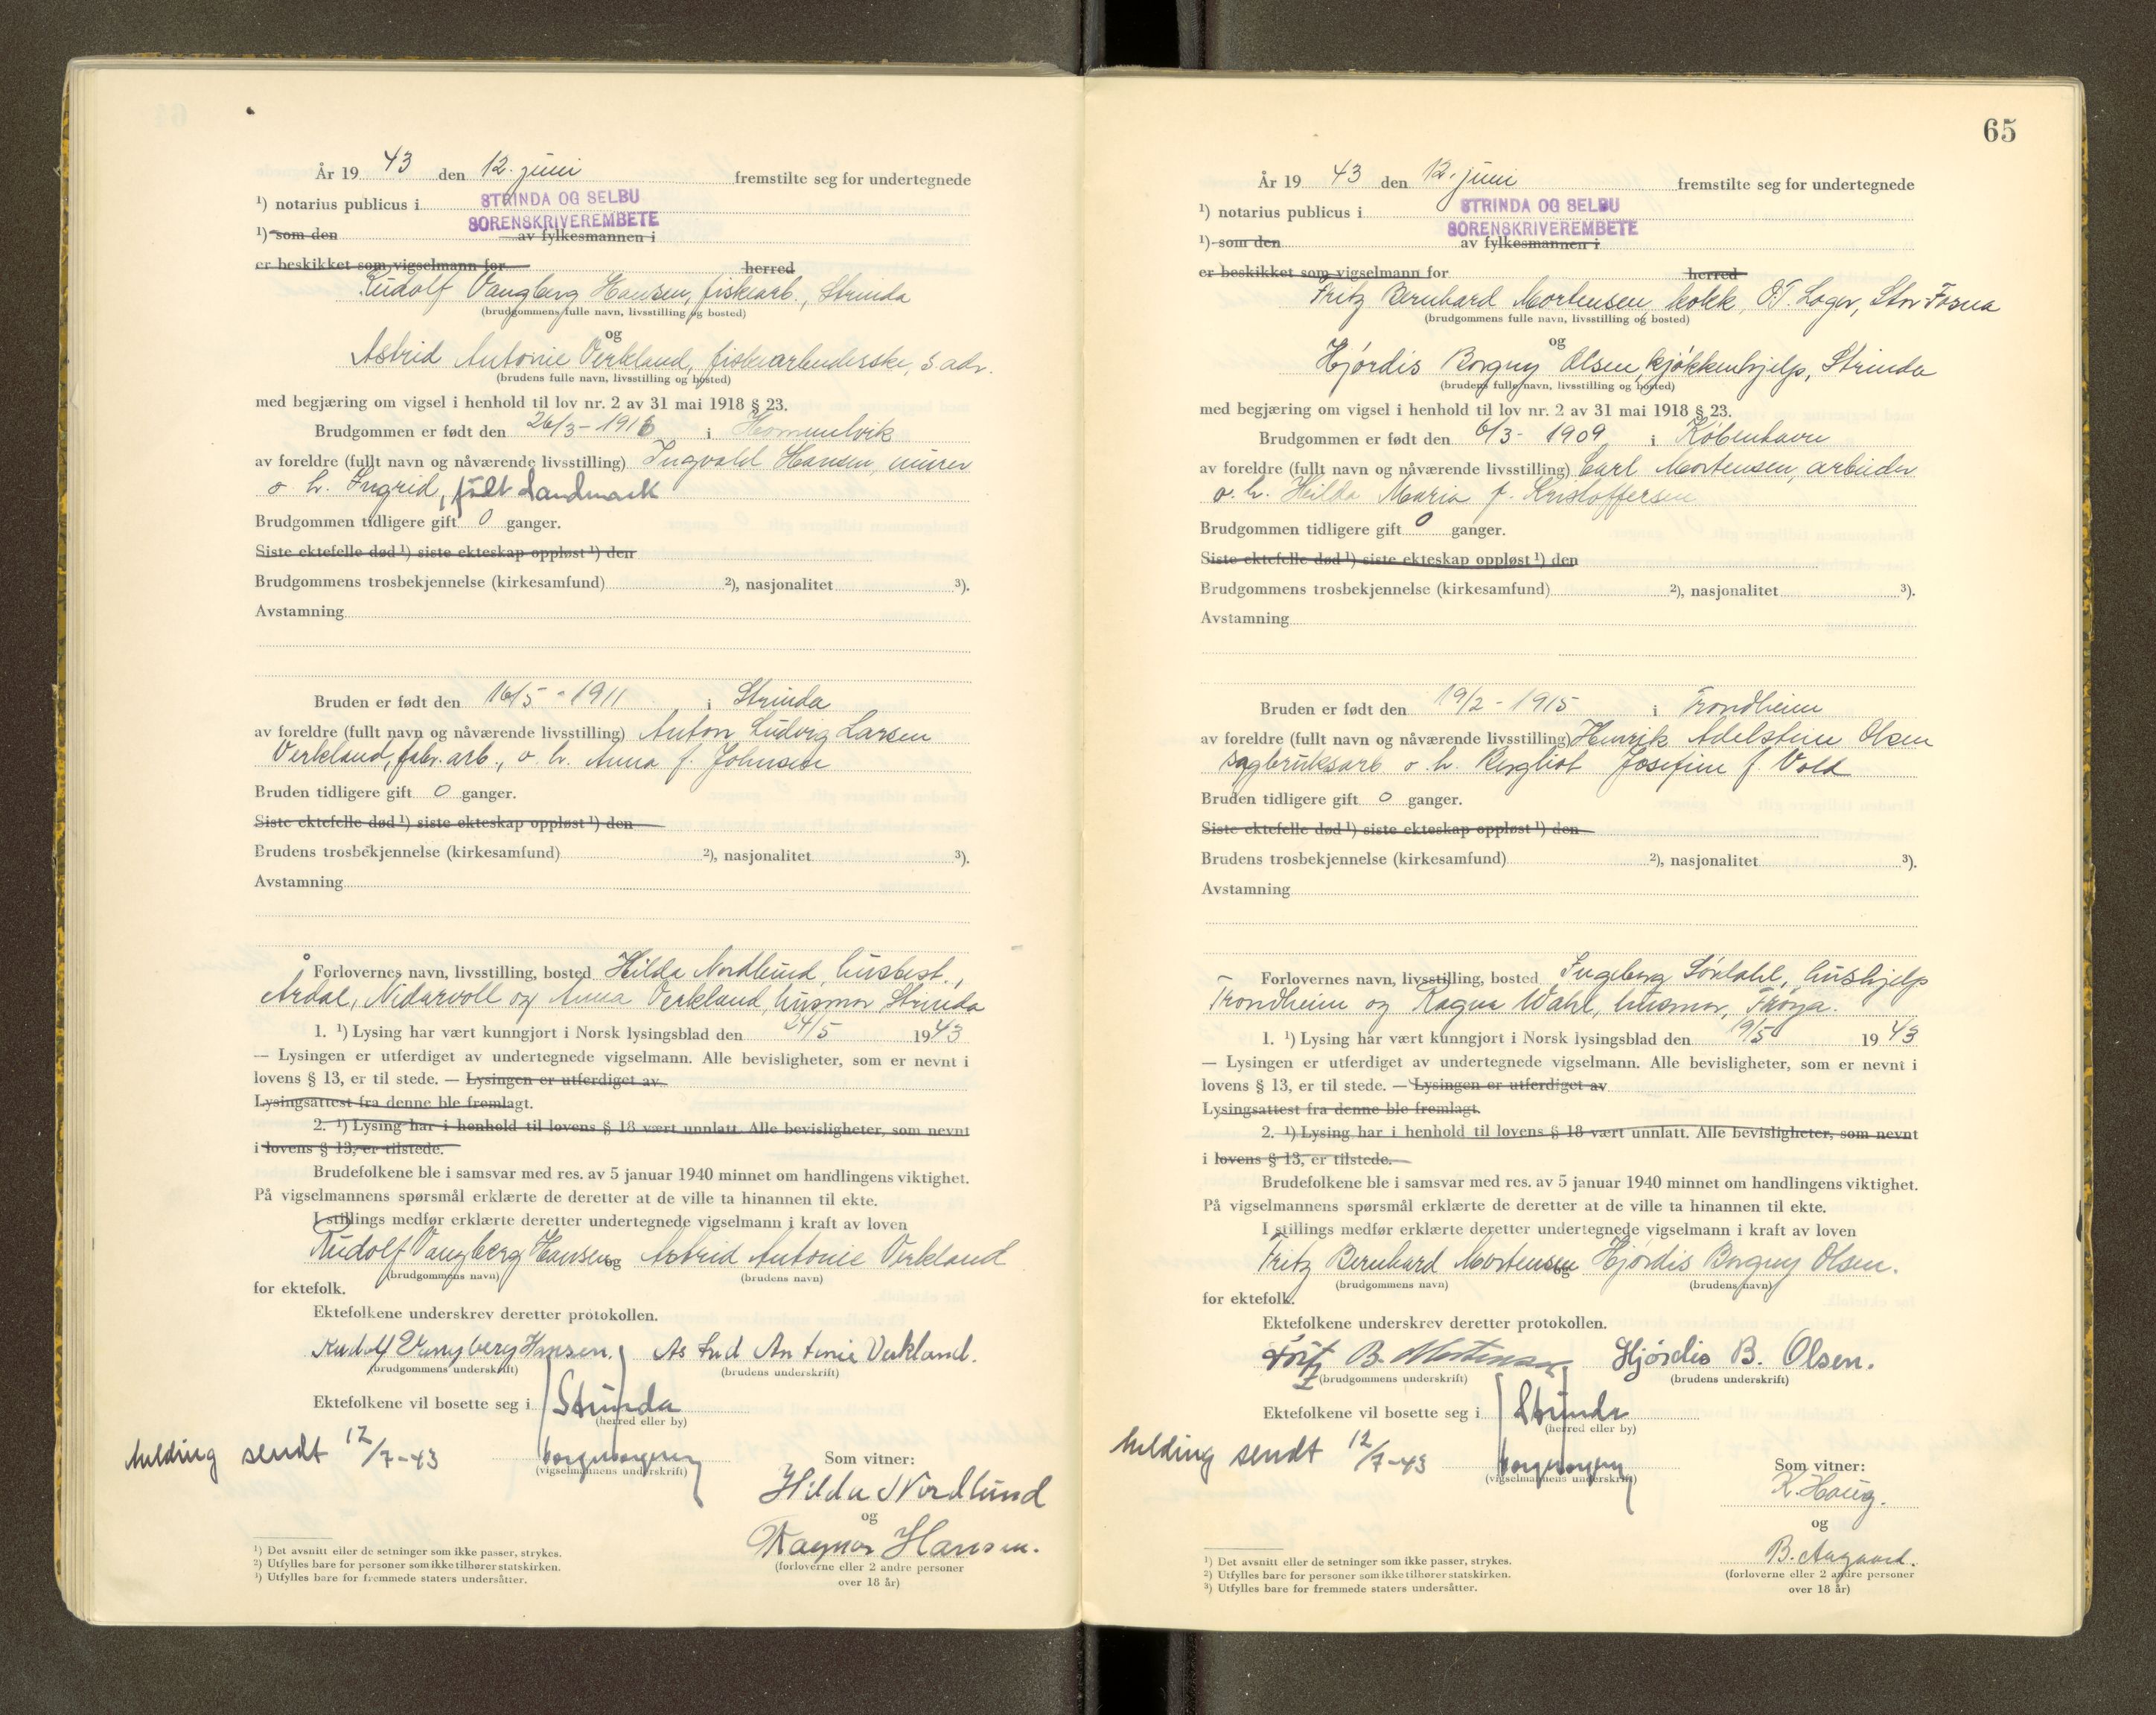 År 19 43 den 12. juni fremstilte seg for undertegnede
¹) notarius publicus i STRINDA OG SELBU
SORENSKRIVEREMBETE
¹) som den av fylkesmannen i
er beskikket som vigselmann for herred
Rudolf Vangberg Hansen, fiskearb., Strinda
(brudgommens fulle navn, livsstilling og bosted)
og
Astrid Antonie Verkland, fiskearbeiderske, s adr.
(brudens fulle navn, livsstilling og bosted)
med begjæring om vigsel i henhold til lov nr. 2 av 31 mai 1918 § 23.
Brudgommen er født den 26/3-1916 i Hommelvik
av foreldre (fullt navn og nåværende livsstilling) Ingvald Hansen, murer
o. h. Ingrid, født Landmark
Brudgommen tidligere gift 0 ganger.
Siste ektefelle død ¹) siste ekteskap oppløst ¹) den
Brudgommens trosbekjennelse (kirkesamfund) ²), nasjonalitet ³).
Avstamning
Bruden er født den 16/5-1911 i Strinda
av foreldre (fullt navn og nåværende livsstilling) Anton Ludvig Larsen
Verkland, fabr. arb., o. h. Anna f. Johnsen
Bruden tidligere gift 0 ganger.
Siste ektefelle død ¹) siste ekteskap oppløst ¹) den
Brudens trosbekjennelse (kirkesamfund) ²), nasjonalitet ³).
Avstamning
Forlovernes navn, livsstilling, bosted Hilda Nordlund, husbest.,
Årdal, Nidarvoll og Anna Verkland, husmor Strinda
1. ¹) Lysing har vært kunngjort i Norsk lysingsblad den 24/5 1943
— Lysingen er utferdiget av undertegnede vigselmann. Alle bevisligheter, som er nevnt i
lovens § 13, er til stede. — Lysingen er utferdiget av
Lysingsattest fra denne ble fremlagt.
2. ¹) Lysing har i henhold til lovens § 18 vært unnlatt. Alle bevisligheter, som nevnt
i lovens § 13, er tilstede.
Brudefolkene ble i samsvar med res. av 5 januar 1940 minnet om handlingens viktighet.
På vigselmannens spørsmål erklærte de deretter at de ville ta hinannen til ekte.
I stillings medfør erklærte deretter undertegnede vigselmann i kraft av loven
Rudolf Vangberg Hansen og Astrid Antonie Verkland
(brudgommens navn) (brudens navn)
for ektefolk.
Ektefolkene underskrev deretter protokollen.
Rudolf Vangberg Hansen. Astrid Antonie Verkland.
(brudgommens underskrift) (brudens underskrift)
Ektefolkene vil bosette seg i Strinda
(herred eller by)
Melding sendt 12/7-43
(vigselmannens underskrift)
Som vitner:
Hilda Nordlund
og
Ragnar Hansen.
(forloverne eller 2 andre personer
over 18 år)
¹) Det avsnitt eller de setninger som ikke passer, strykes.
²) Utfylles bare for personer som ikke tilhører statskirken.
³) Utfylles bare for fremmede staters undersåtter.
65
År 19 43 den 12. juni fremstilte seg for undertegnede
¹) notarius publicus i STRINDA OG SELBU
SORENSKRIVEREMBETE
¹) som den av fylkesmannen i
er beskikket som vigselmann for herred
Fritz Bernhard Mortensen, kokk, O.T. Lager, Stor-Fosna
(brudgommens fulle navn, livsstilling og bosted)
og
Hjórdis Borgny Olsen, kjøkkenhjelp, Strinda
(brudens fulle navn, livsstilling og bosted)
med begjæring om vigsel i henhold til lov nr. 2 av 31 mai 1918 § 23.
Brudgommen er født den 6/3-1909 i København
av foreldre (fullt navn og nåværende livsstilling) Carl Mortensen, arbeider
o. h. Hilda Maria f. Kristoffersen
Brudgommen tidligere gift 0 ganger.
Siste ektefelle død ¹) siste ekteskap oppløst ¹) den
Brudgommens trosbekjennelse (kirkesamfund) ²), nasjonalitet ³).
Avstamning
Bruden er født den 19/2-1915 i Trondheim
av foreldre (fullt navn og nåværende livsstilling) Henrik Adelsten Olsen
sagbruksarb o. h. Bergliot Josefine f. Vold
Bruden tidligere gift 0 ganger.
Siste ektefelle død ¹) siste ekteskap oppløst ¹) den
Brudens trosbekjennelse (kirkesamfund) ²), nasjonalitet ³).
Avstamning
Forlovernes navn, livsstilling, bosted Ingeborg Sördahl, hushjelp
Trondheim og Ragna Wahl, husmor, Frøya.
1. ¹) Lysing har vært kunngjort i Norsk lysingsblad den 19/5 1943
— Lysingen er utferdiget av undertegnede vigselmann. Alle bevisligheter, som er nevnt i
lovens § 13, er til stede. — Lysingen er utferdiget av
Lysingsattest fra denne ble fremlagt.
2. ¹) Lysing har i henhold til lovens § 18 vært unnlatt. Alle bevisligheter, som nevnt
i lovens § 13, er tilstede.
Brudefolkene ble i samsvar med res. av 5 januar 1940 minnet om handlingens viktighet.
På vigselmannens spørsmål erklærte de deretter at de ville ta hinannen til ekte.
I stillings medfør erklærte deretter undertegnede vigselmann i kraft av loven
Fritz Bernhard Mortensen og Hjórdis Borgny Olsen.
(brudgommens navn) (brudens navn)
for ektefolk.
Ektefolkene underskrev deretter protokollen.
Fritz B. Mortensen Hjördis B. Olsen.
(brudgommens underskrift) (brudens underskrift)
Ektefolkene vil bosette seg i Strinda
(herred eller by)
Melding sendt 12/7-43
(vigselmannens underskrift)
Som vitner:
K. Haug.
og
B. Aagaard.
(forloverne eller 2 andre personer
over 18 år)
¹) Det avsnitt eller de setninger som ikke passer, strykes.
²) Utfylles bare for personer som ikke tilhører statskirken.
³) Utfylles bare for fremmede staters undersåtter.